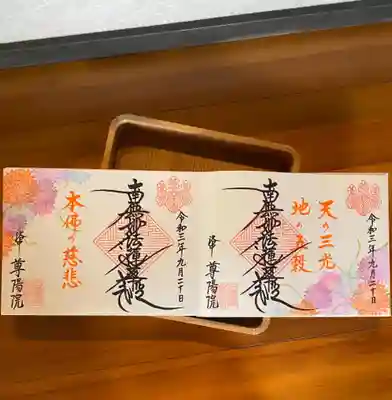 令和三年九月二十日
天の三光
地の五穀
南無妙法蓮華経
尊陽院
令和三年九月二十日
南無妙法蓮華経
本佛の慈悲
尊陽院